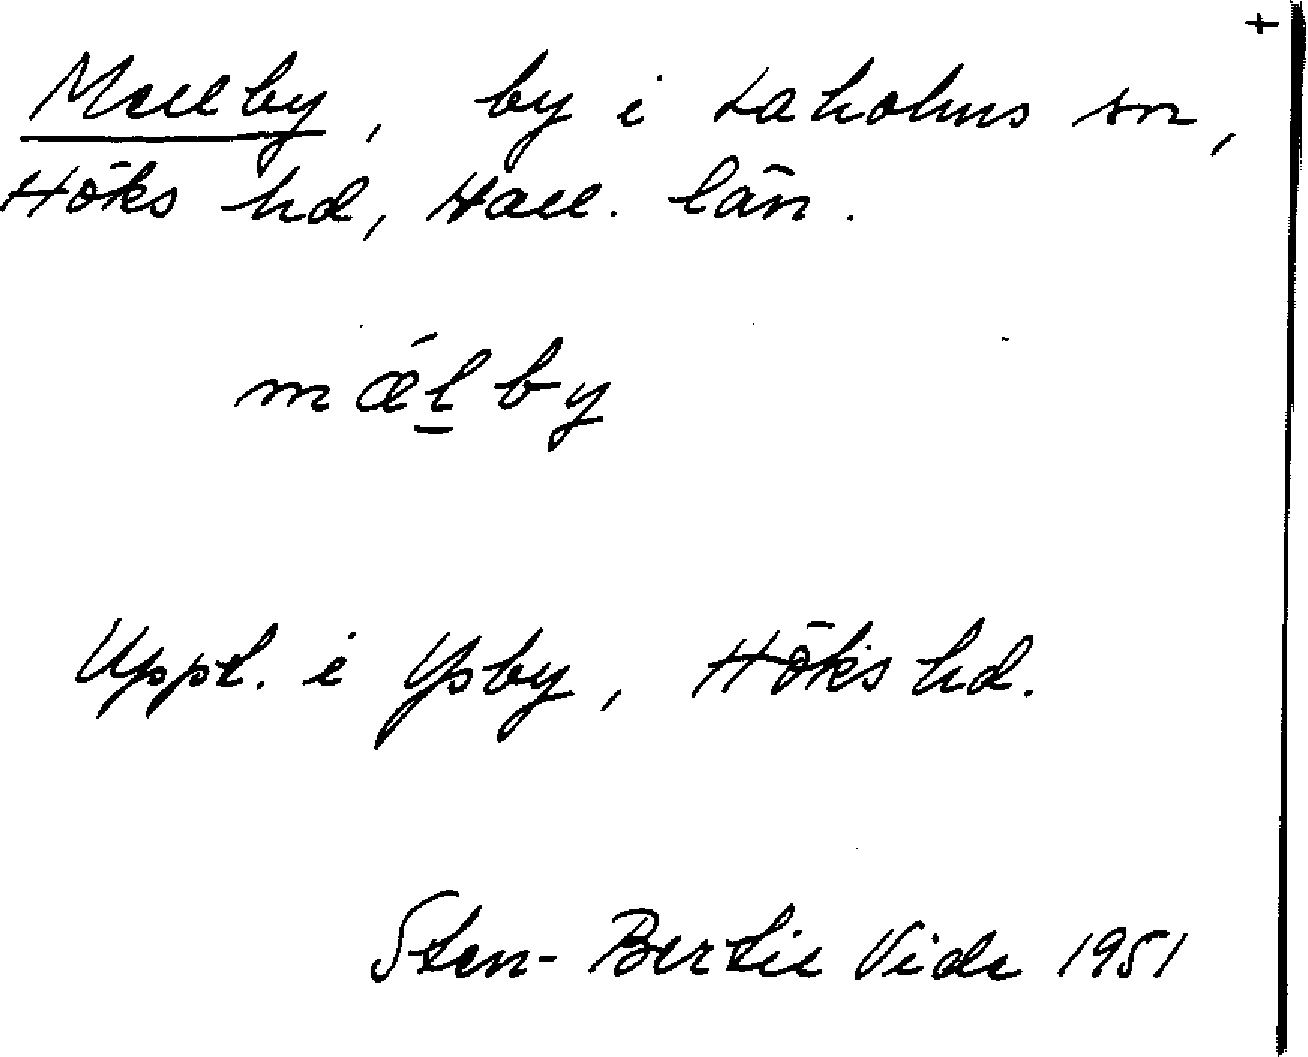 +
Mellby, by i Laholms sn,
Höks hd, Hall. län.
mǽl̲by
Uppt. i Ysby, Höks hd.
Sten-Bertil Vide 1951